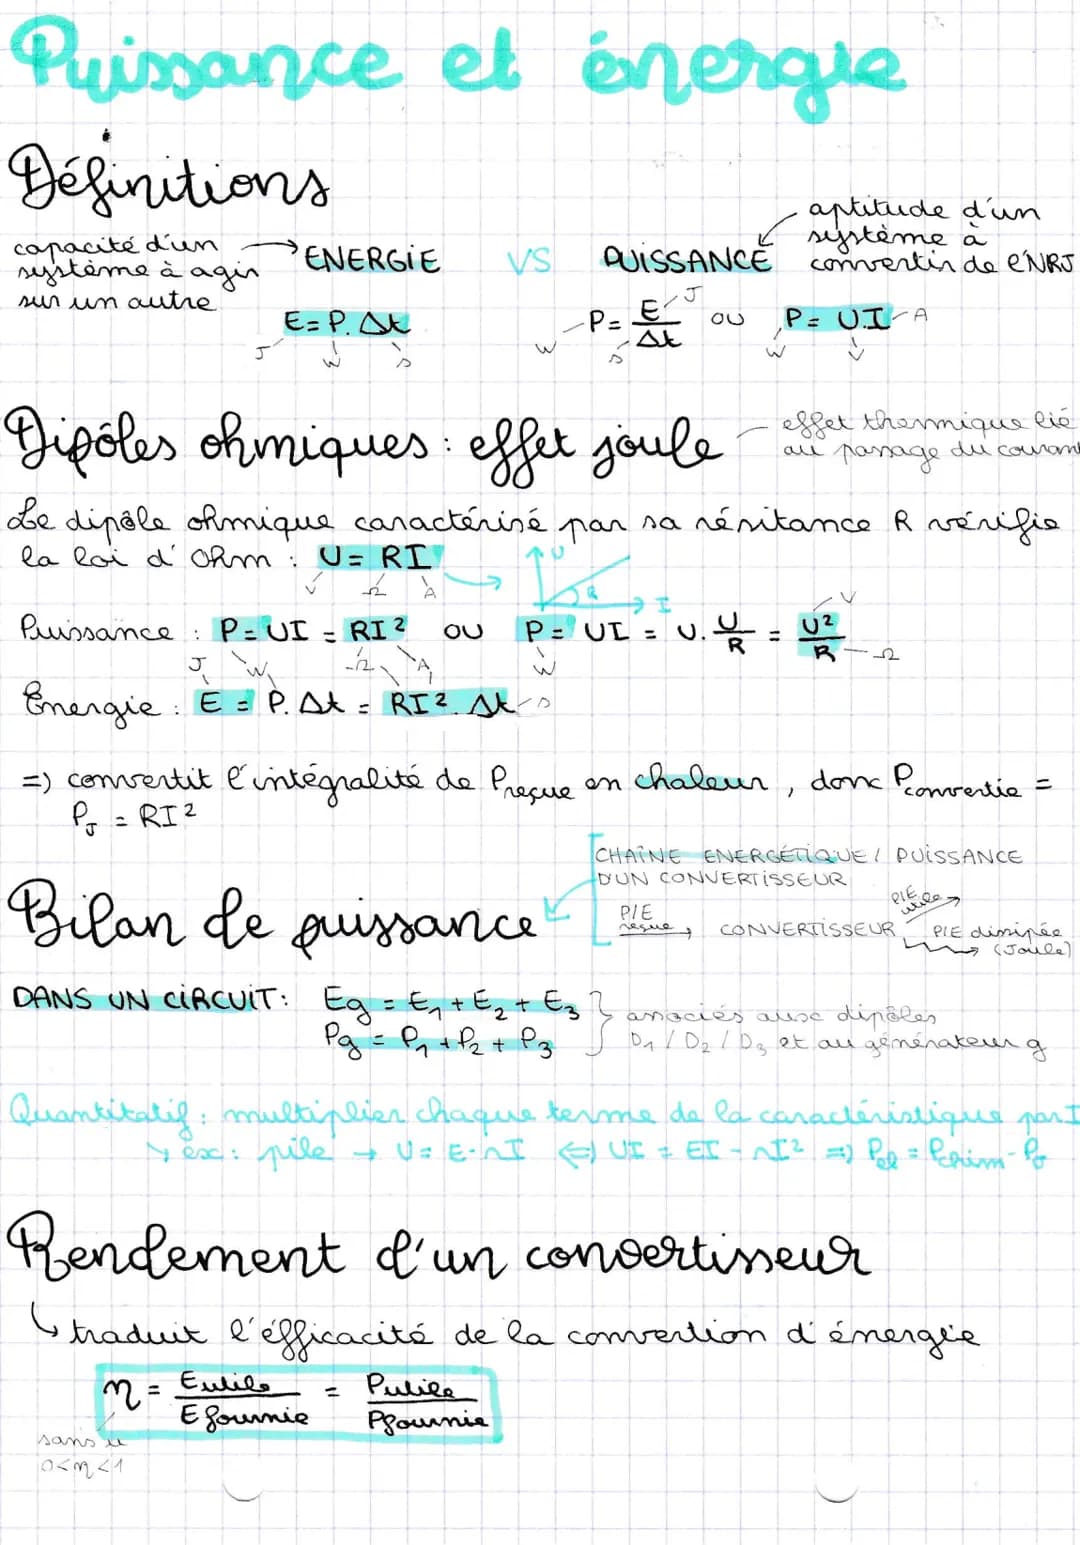 Puissance et énergie
Définitions
capacité d'un
système à agir
sur un autre
ENERGIE
VS
PUISSANCE
aptitude d'un
système à
convertir de l'NRJ
E = P. Δt
J
W
s
W
P = E/Δt
J
s
ou
P = U.I
A
W
V
Dipôles ohmiques : effet joule
effet thermique lié
au passage du courant
Le dipôle ohmique caractérisé par sa résitance R vérifie
la loi d'Ohm : U = RI
V
Ω
A
U
R
I
Puissance : P = UI = RI² ou P = UI = U. U/R = U²/R
V
Ω
J
W
Ω
A
W
Energie : E = P. Δt = RI². Δt
s
=> convertit l'intégralité de Preçue en chaleur, donc Pconvertie =
PJ = RI²
CHAÎNE ENERGÉTIQUE / PUISSANCE
D'UN CONVERTISSEUR
Bilan de puissance
P/E
reçue
CONVERTISSEUR
P/E
utile
P/E dissipée
(Joule)
DANS UN CIRCUIT : Eg = E1 + E2 + E3
Pg = P1 + P2 + P3
associés aux dipôles
D1 / D2 / D3 et au générateur g
Quantitatif : multiplier chaque terme de la caractéristique par I
ex : pile → U = E - rI ⇔ UI = EI - rI² => Pel = Pchim - PJ
Rendement d'un convertisseur
traduit l'éfficacité de la convertion d'énergie
η = Eutile/Efournie = Putile/Pfournie
sans u
0<η<1